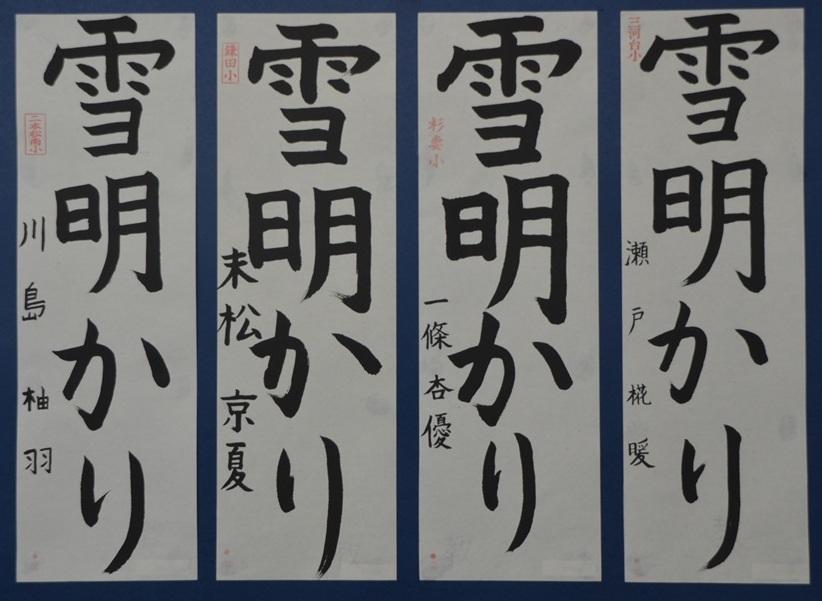 三河台小
雪明かり
瀬戸椛暖
杉妻小
雪明かり
一條杏優
鎌田小
雪明かり
末松京夏
二本松南小
雪明かり
川島柚羽